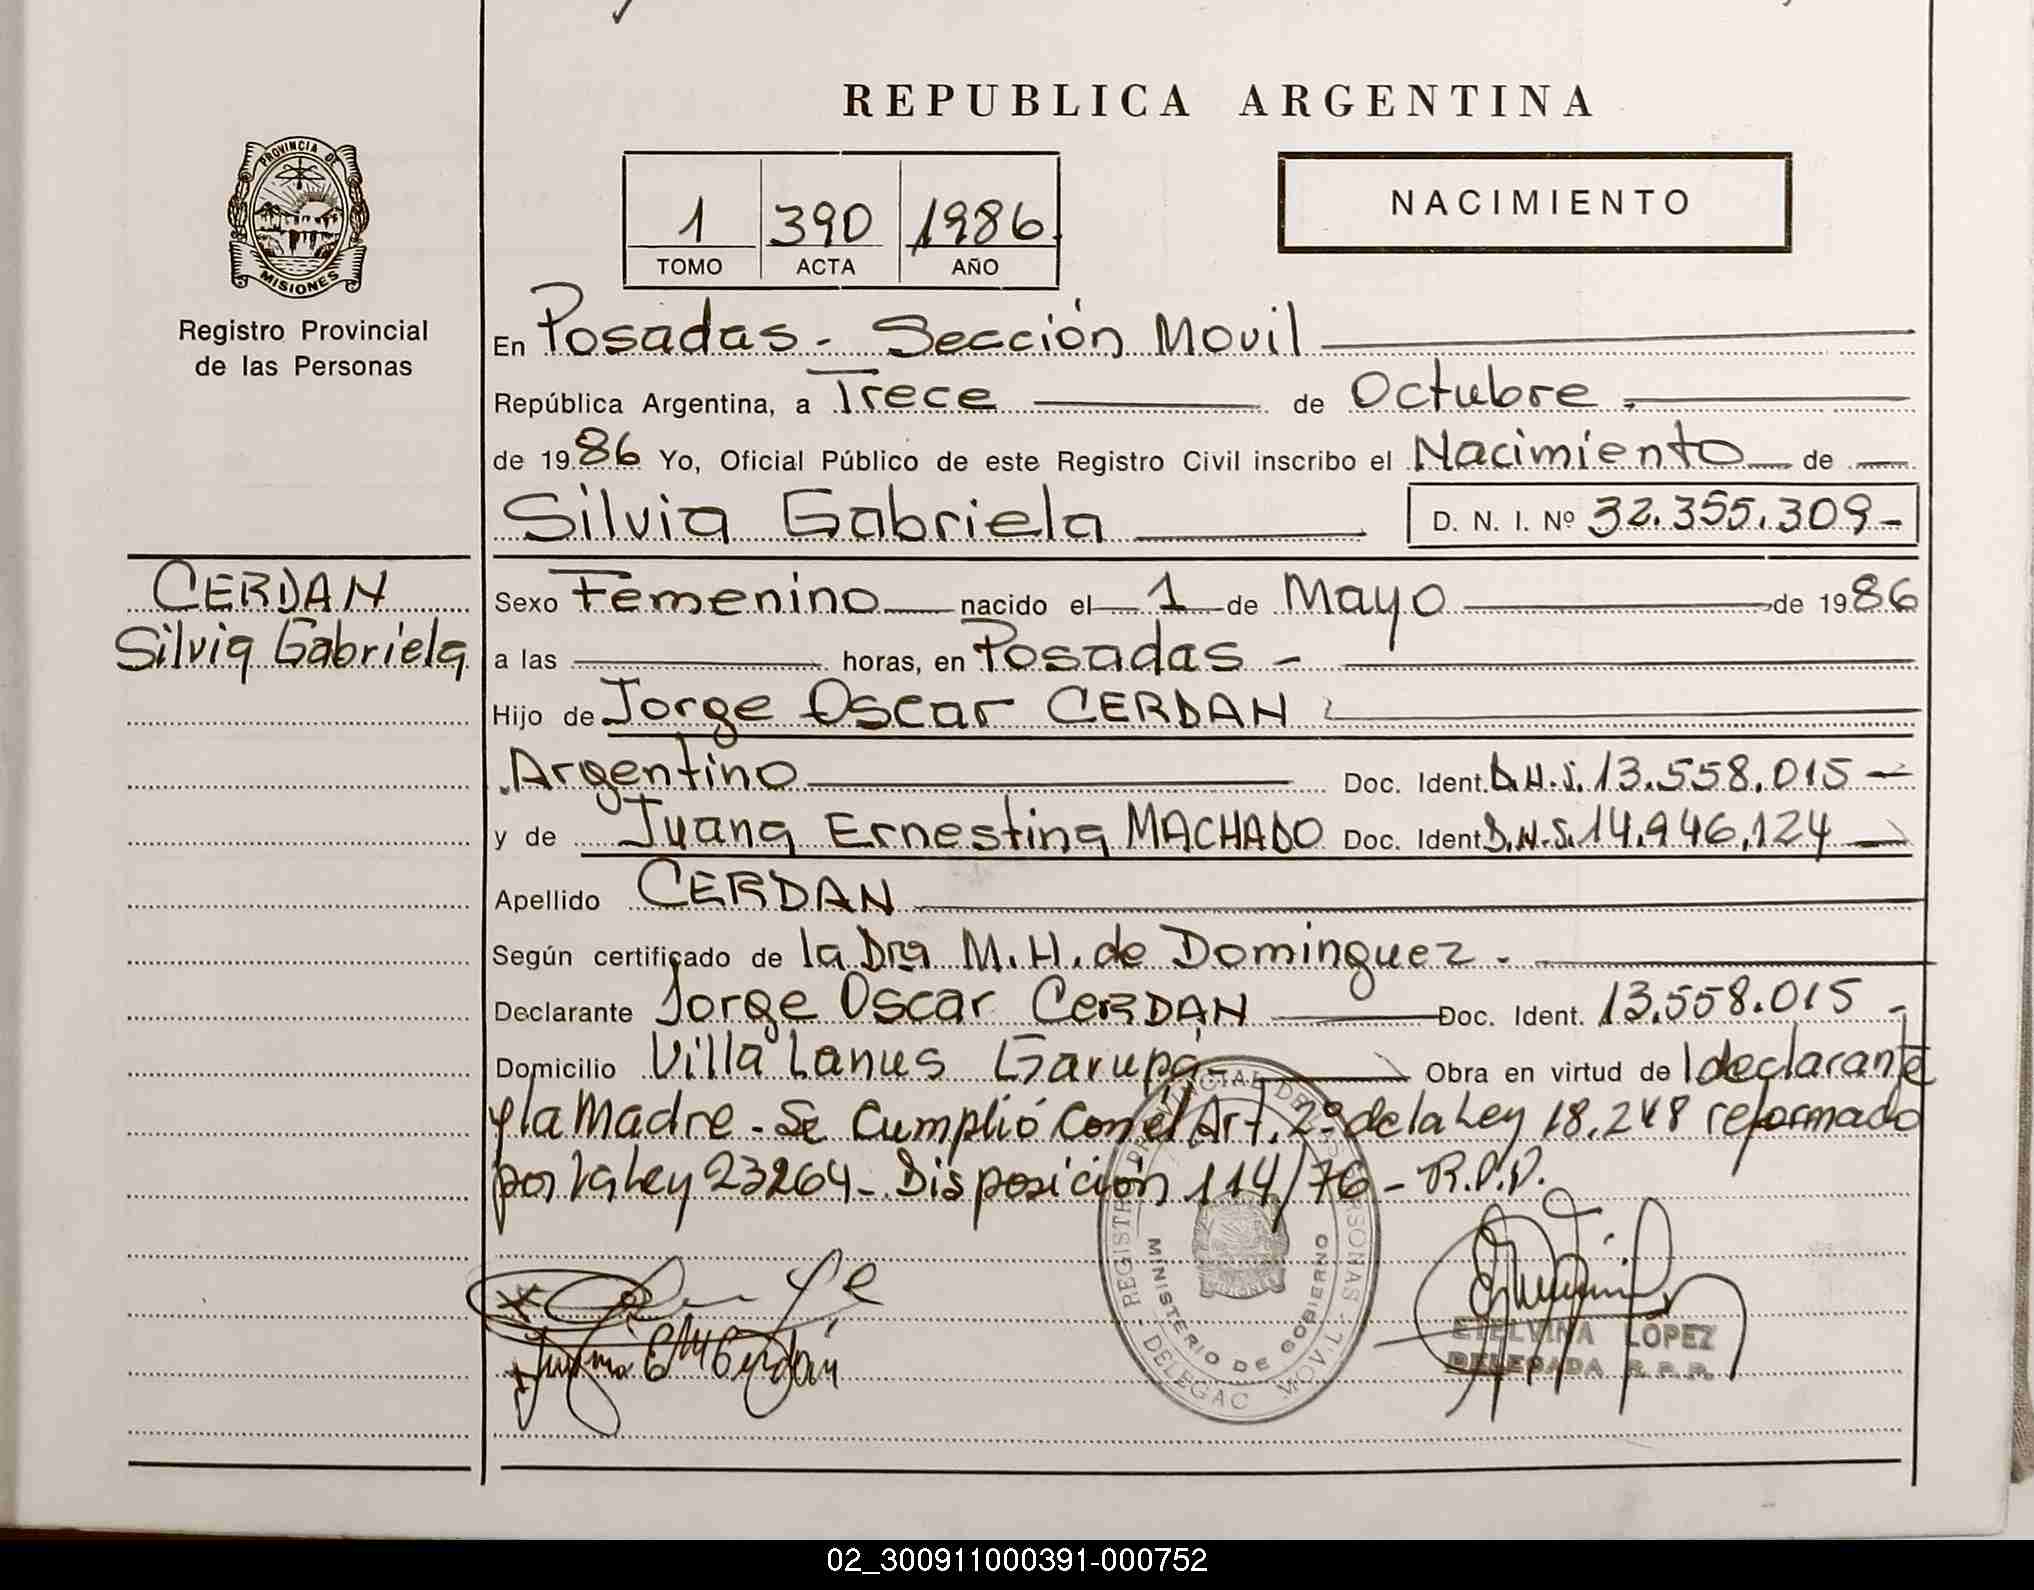 REPUBLICA ARGENTINA
PROVINCIA DE MISIONES
Registro Provincial
de las Personas
1 390 1986
TOMO ACTA AÑO
NACIMIENTO
En Posadas - Sección Movil
República Argentina, a Trece de Octubre
de 1986 Yo, Oficial Público de este Registro Civil inscribo el Nacimiento de
Silvia Gabriela D. N. I. Nº 32.355.309-
CERDAN
Silvia Gabriela
Sexo Femenino nacido el 1 de Mayo de 1986
a las horas, en Posadas -
Hijo de Jorge Oscar CERDAN
Argentino Doc. Ident. D.N.I. 13.558.015
y de Juana Ernestina MACHADO Doc. Ident D.N.I. 14.946.124
Apellido CERDAN
Según certificado de la Dra M.H. de Dominguez.
Declarante Jorge Oscar CERDAN Doc. Ident. 13.558.015 -
Domicilio Villa Lanus Garupá- Obra en virtud de l declarante
y la Madre - Se Cumplió con el Art. 2º de la Ley 18.248 reformado
por la Ley 23264 - Disposición 114/76 - R.P.P.
MINISTERIO DE GOBIERNO
ETELVINA LOPEZ
DELEGADA R.P.P.
02_300911000391-000752